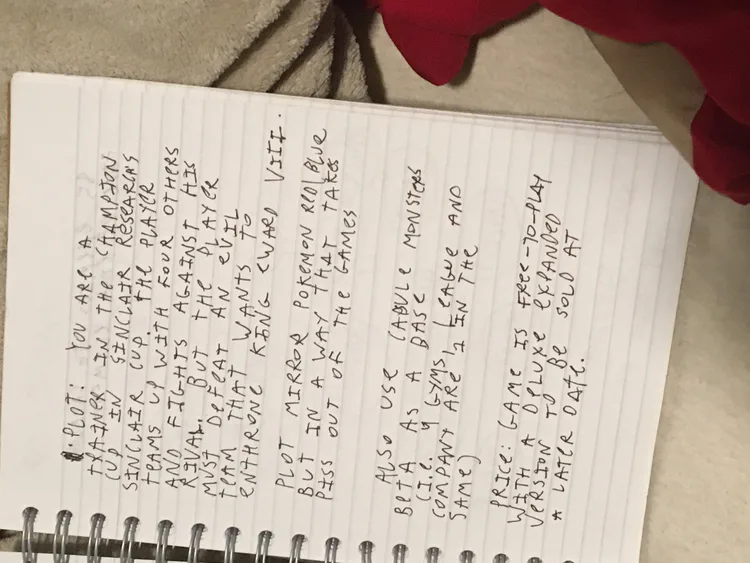 PLOT: YOU ARE A
TRAINER IN THE CHAMPION
CUP IN SINCLAIR RESEARCH'S
SINCLAIR CUP. THE PLAYER
TEAMS UP WITH FOUR OTHERS
AND FIGHTS AGAINST HIS
RIVAL. BUT THE PLAYER
MUST DEFEAT AN EVIL
TEAM THAT WANTS TO
ENTHRONE KING EWARD VIII.
PLOT MIRROR POKEMON RED/BLUE
BUT IN A WAY THAT TAKES
PISS OUT OF THE GAMES
ALSO USE CABULE MONSTERS
BETA AS A BASE
(I.E. 4 GYMS, LEAGUE AND
COMPANY ARE 1 IN THE
SAME)
PRICE: GAME IS FREE-TO-PLAY
WITH A DELUXE EXPANDED
VERSION TO BE SOLD AT
A LATER DATE.